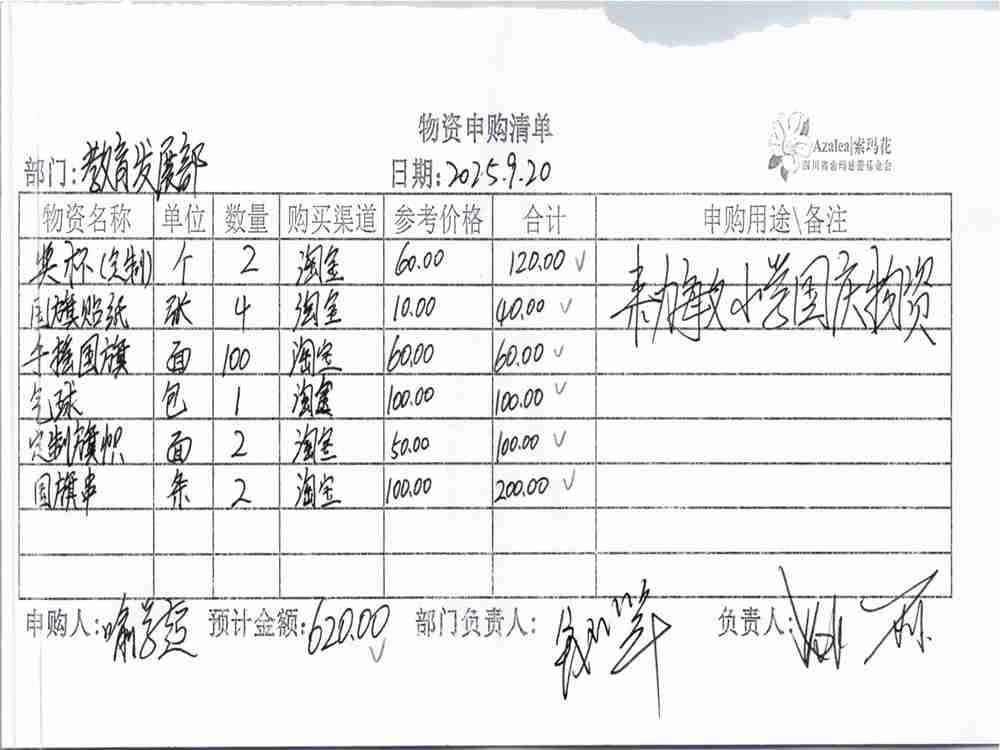 物资申购清单
Azalea|索玛花
四川省索玛慈善基金会
部门:教育发展部 日期:2025.9.20
物资名称 单位 数量 购买渠道 参考价格 合计 申购用途\备注
奖杯(定制) 个 2 淘宝 60.00 120.00 ✓
国旗贴纸 张 4 淘宝 10.00 40.00 ✓
手摇国旗 面 100 淘宝 60.00 60.00 ✓
气球 包 1 淘宝 100.00 100.00 ✓
定制旗帜 面 2 淘宝 50.00 100.00 ✓
国旗串 条 2 淘宝 100.00 200.00 ✓
小学国庆物资
申购人: 预计金额:620.00 ✓ 部门负责人: 负责人: